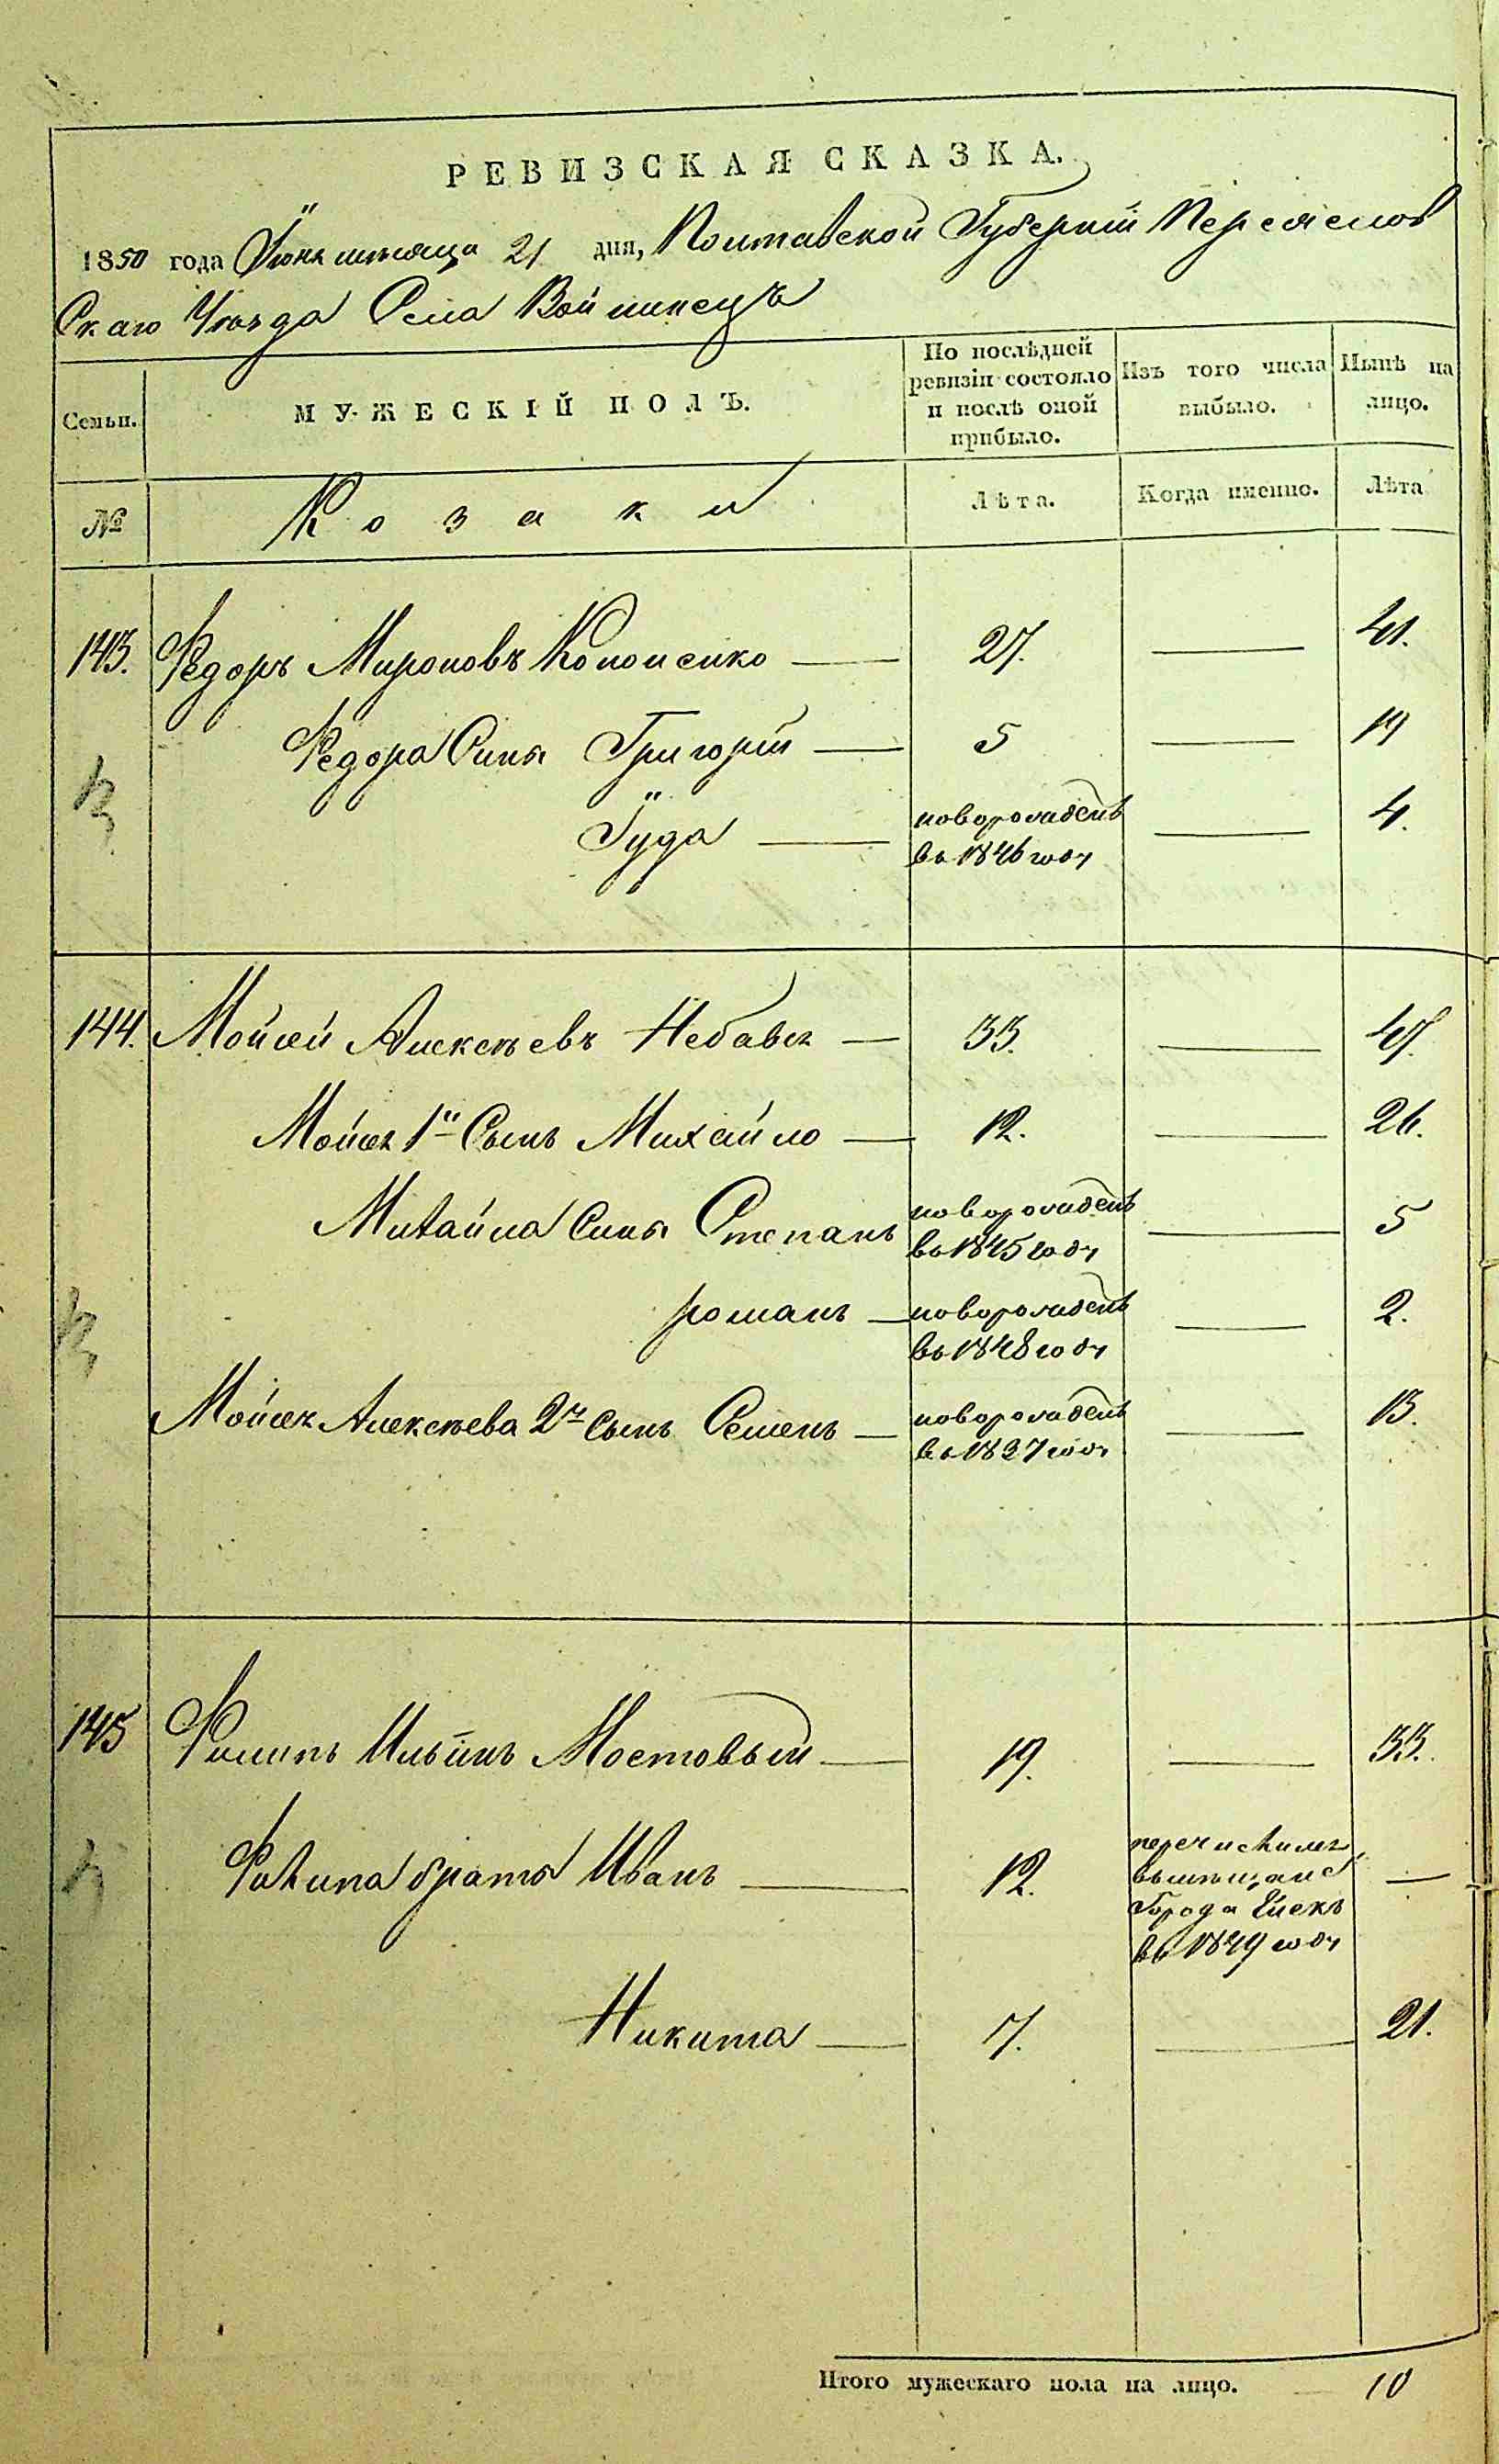 РЕВИЗСКАЯ СКАЗКА.
1850 года Їюня мѣсяца 21 дня, Полтавской Губерніи Переяслов
Скаго Уѣзда Села Войтинецъ
Семьи. МУЖЕСКІЙ ПОЛЪ. По послѣдней ревизіи состояло и послѣ оной прибыло. Изъ того числа выбыло. Нынѣ на лицо.
№ Козаки Лѣта. Когда именно. Лѣта
143. Федоръ Мироновъ Кононенко 27. 41.
Федора Сынъ Григорій 5 19
Їуда новорожденъ въ 1846 году 4.
144. Мойсей Алексѣевъ 33. 47.
Мойсея 1й Сынъ Михайло 12. 26.
Михайла Сынъ Степанъ новорожденъ въ 1845 году 5
романъ новорожденъ въ 1848 году 2.
Мойсея Алексѣева 2й Сынъ Семенъ новорожденъ въ 1837 году 13.
145 Филипъ Ильинъ Мостовый 19. 33.
Филипа братья Иванъ 12. перечисленъ
въ мѣщане
Города Ейскъ
въ 1849 году
Никита 7. 21.
Итого мужескаго пола на лицо. 10